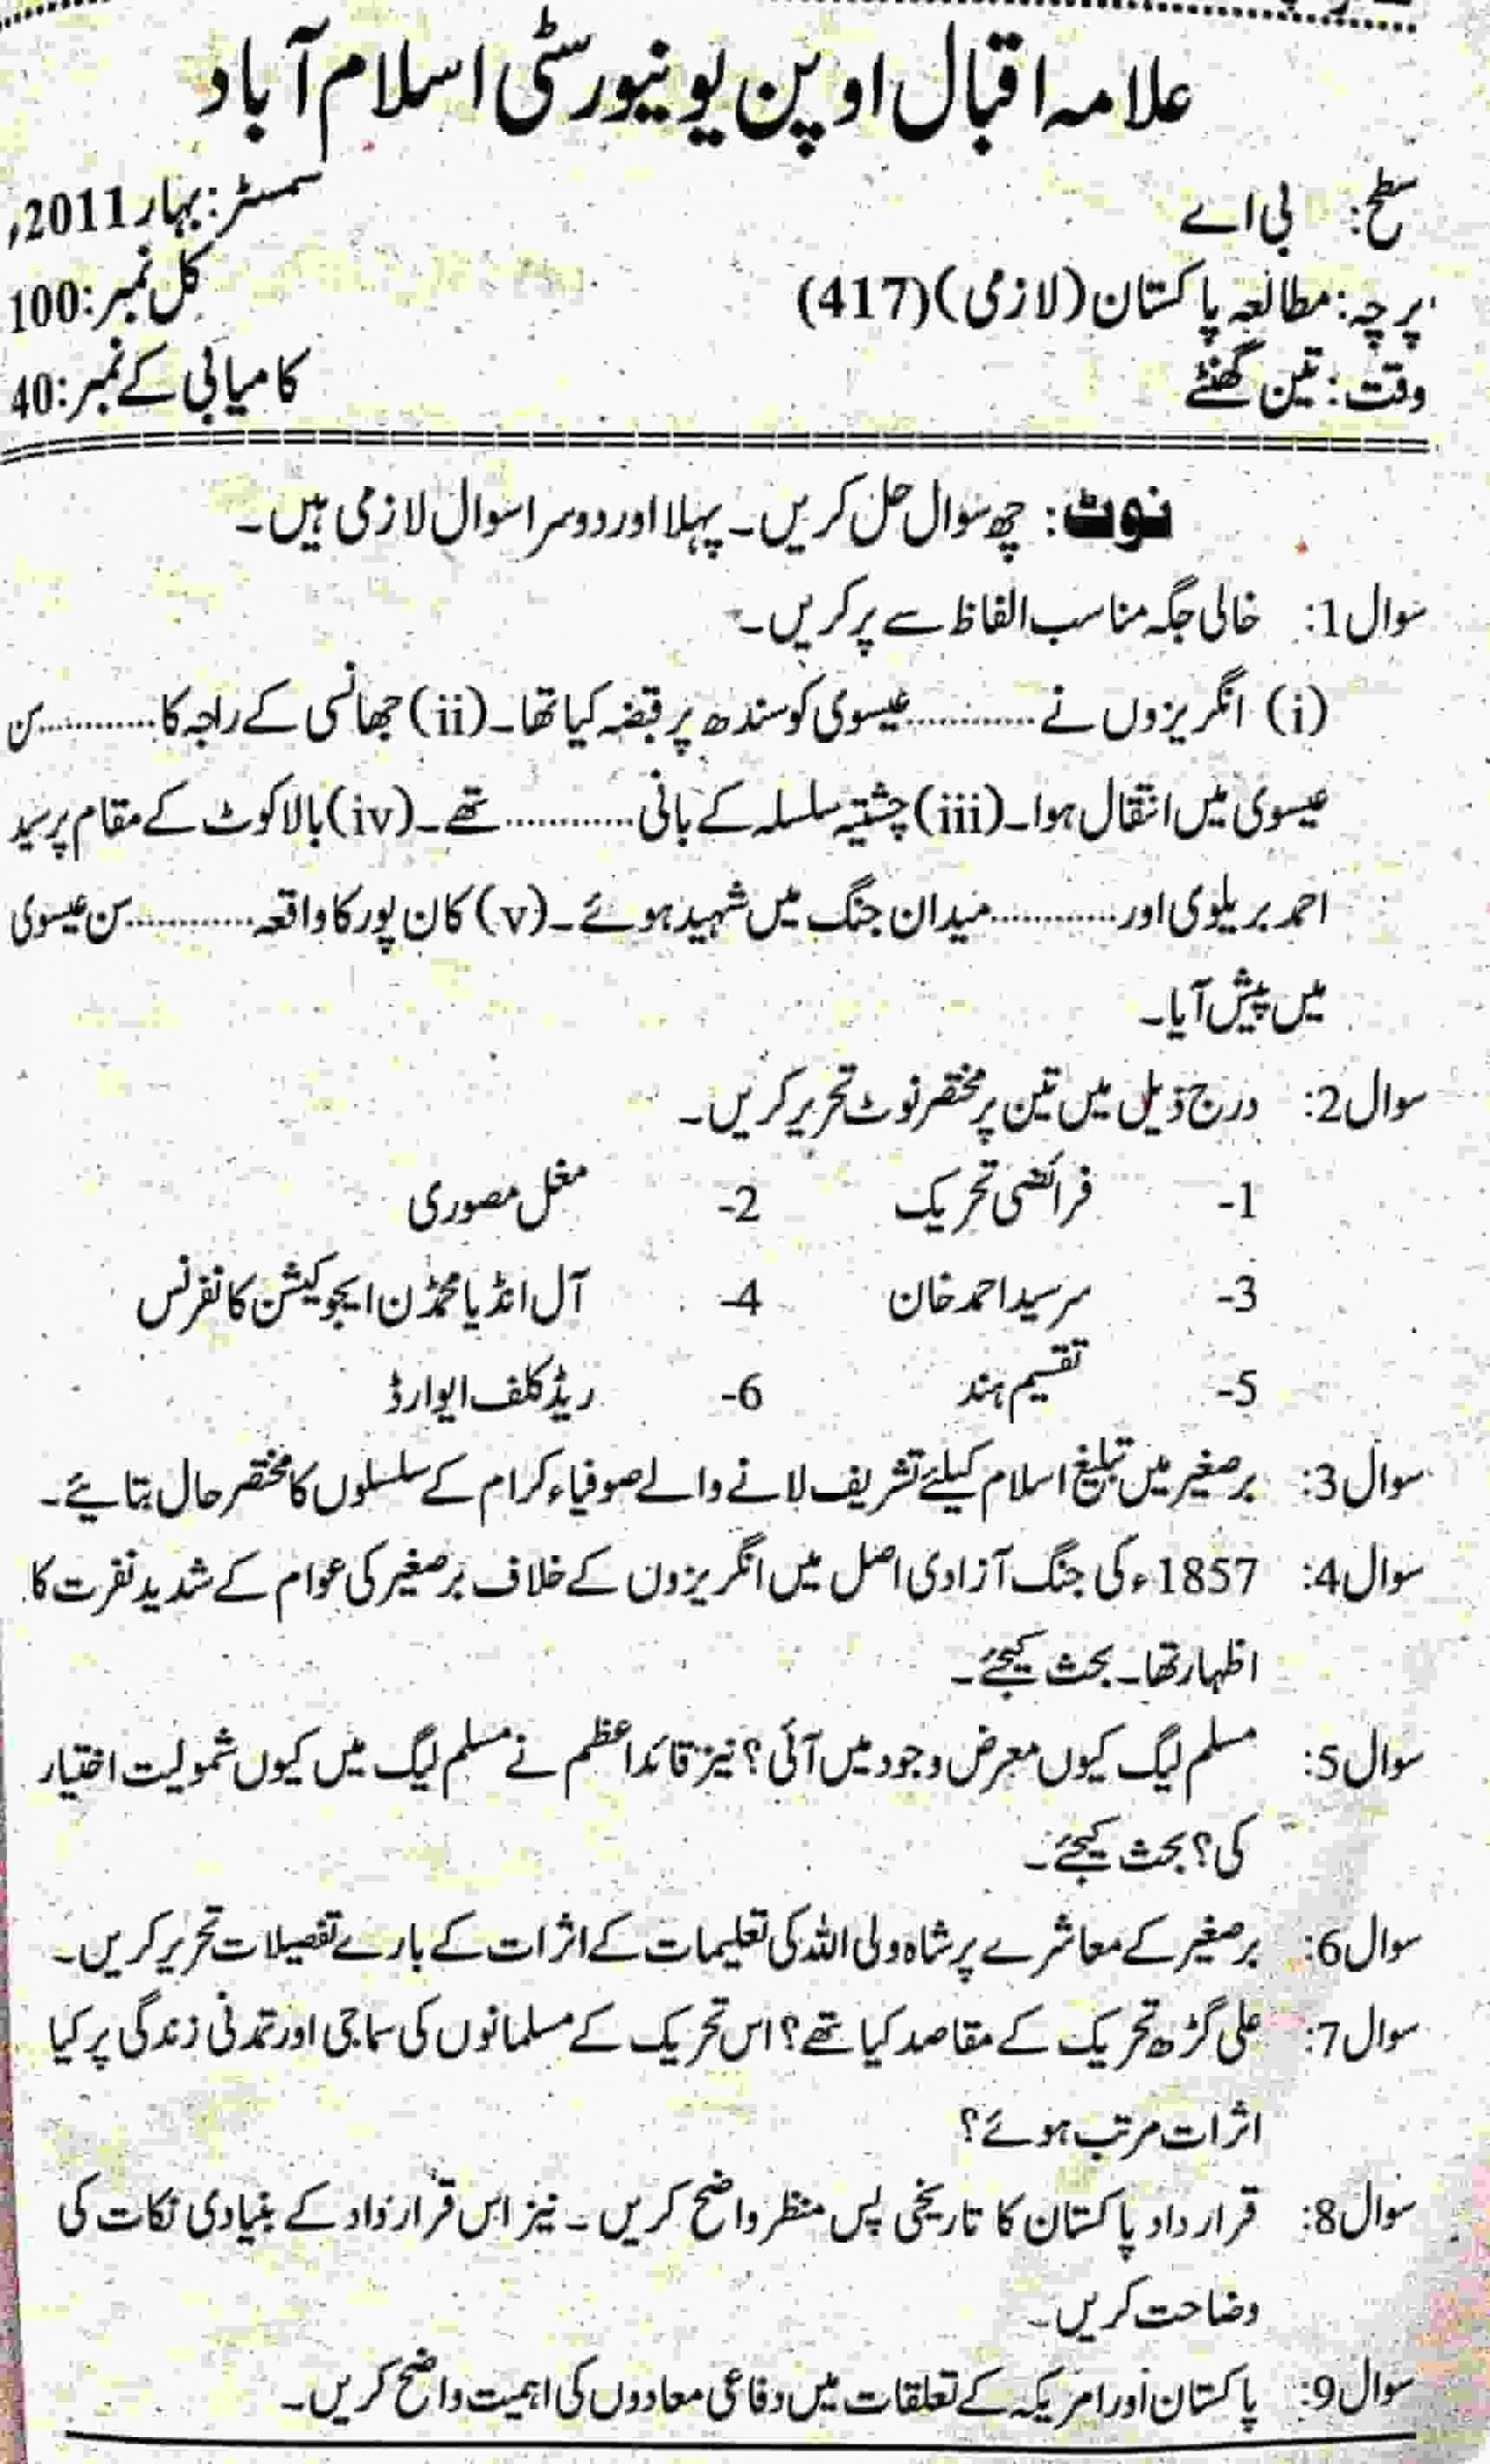 علامہ اقبال اوپن یونیورسٹی اسلام آباد
سطح: بی اے سمسٹر: بہار 2011ء
پرچہ: مطالعہ پاکستان (لازمی) (417) کل نمبر: 100
وقت: تین گھنٹے کامیابی کے نمبر: 40
نوٹ: چھ سوال حل کریں۔ پہلا اور دوسرا سوال لازمی ہیں۔
سوال 1: خالی جگہ مناسب الفاظ سے پر کریں۔
(i) انگریزوں نے ............ عیسوی کو سندھ پر قبضہ کیا تھا۔ (ii) جھانسی کے راجہ کا ............ سن
عیسوی میں انتقال ہوا۔ (iii) چشتیہ سلسلہ کے بانی ............ تھے۔ (iv) بالا کوٹ کے مقام پر سید
احمد بریلوی اور ............ میدان جنگ میں شہید ہوئے۔ (v) کان پور کا واقعہ ............ سن عیسوی
میں پیش آیا۔
سوال 2: درج ذیل میں تین پر مختصر نوٹ تحریر کریں۔
1- فرائضی تحریک 2- مغل مصوری
3- سرسید احمد خان 4- آل انڈیا محمڈن ایجوکیشن کانفرنس
5- تقسیم ہند 6- ریڈ کلف ایوارڈ
سوال 3: برصغیر میں تبلیغ اسلام کیلئے تشریف لانے والے صوفیاء کرام کے سلسلوں کا مختصر حال بتایئے۔
سوال 4: 1857ء کی جنگ آزادی اصل میں انگریزوں کے خلاف برصغیر کی عوام کے شدید نفرت کا
اظہار تھا۔ بحث کیجئے۔
سوال 5: مسلم لیگ کیوں معرض وجود میں آئی؟ نیز قائداعظم نے مسلم لیگ میں کیوں شمولیت اختیار
کی؟ بحث کیجئے۔
سوال 6: برصغیر کے معاشرے پر شاہ ولی اللہ کی تعلیمات کے اثرات کے بارے تفصیلات تحریر کریں۔
سوال 7: علی گڑھ تحریک کے مقاصد کیا تھے؟ اس تحریک کے مسلمانوں کی سماجی اور تمدنی زندگی پر کیا
اثرات مرتب ہوئے؟
سوال 8: قرار داد پاکستان کا تاریخی پس منظر واضح کریں۔ نیز اس قرار داد کے بنیادی نکات کی
وضاحت کریں۔
سوال 9: پاکستان اور امریکہ کے تعلقات میں دفاعی معاہدوں کی اہمیت واضح کریں۔